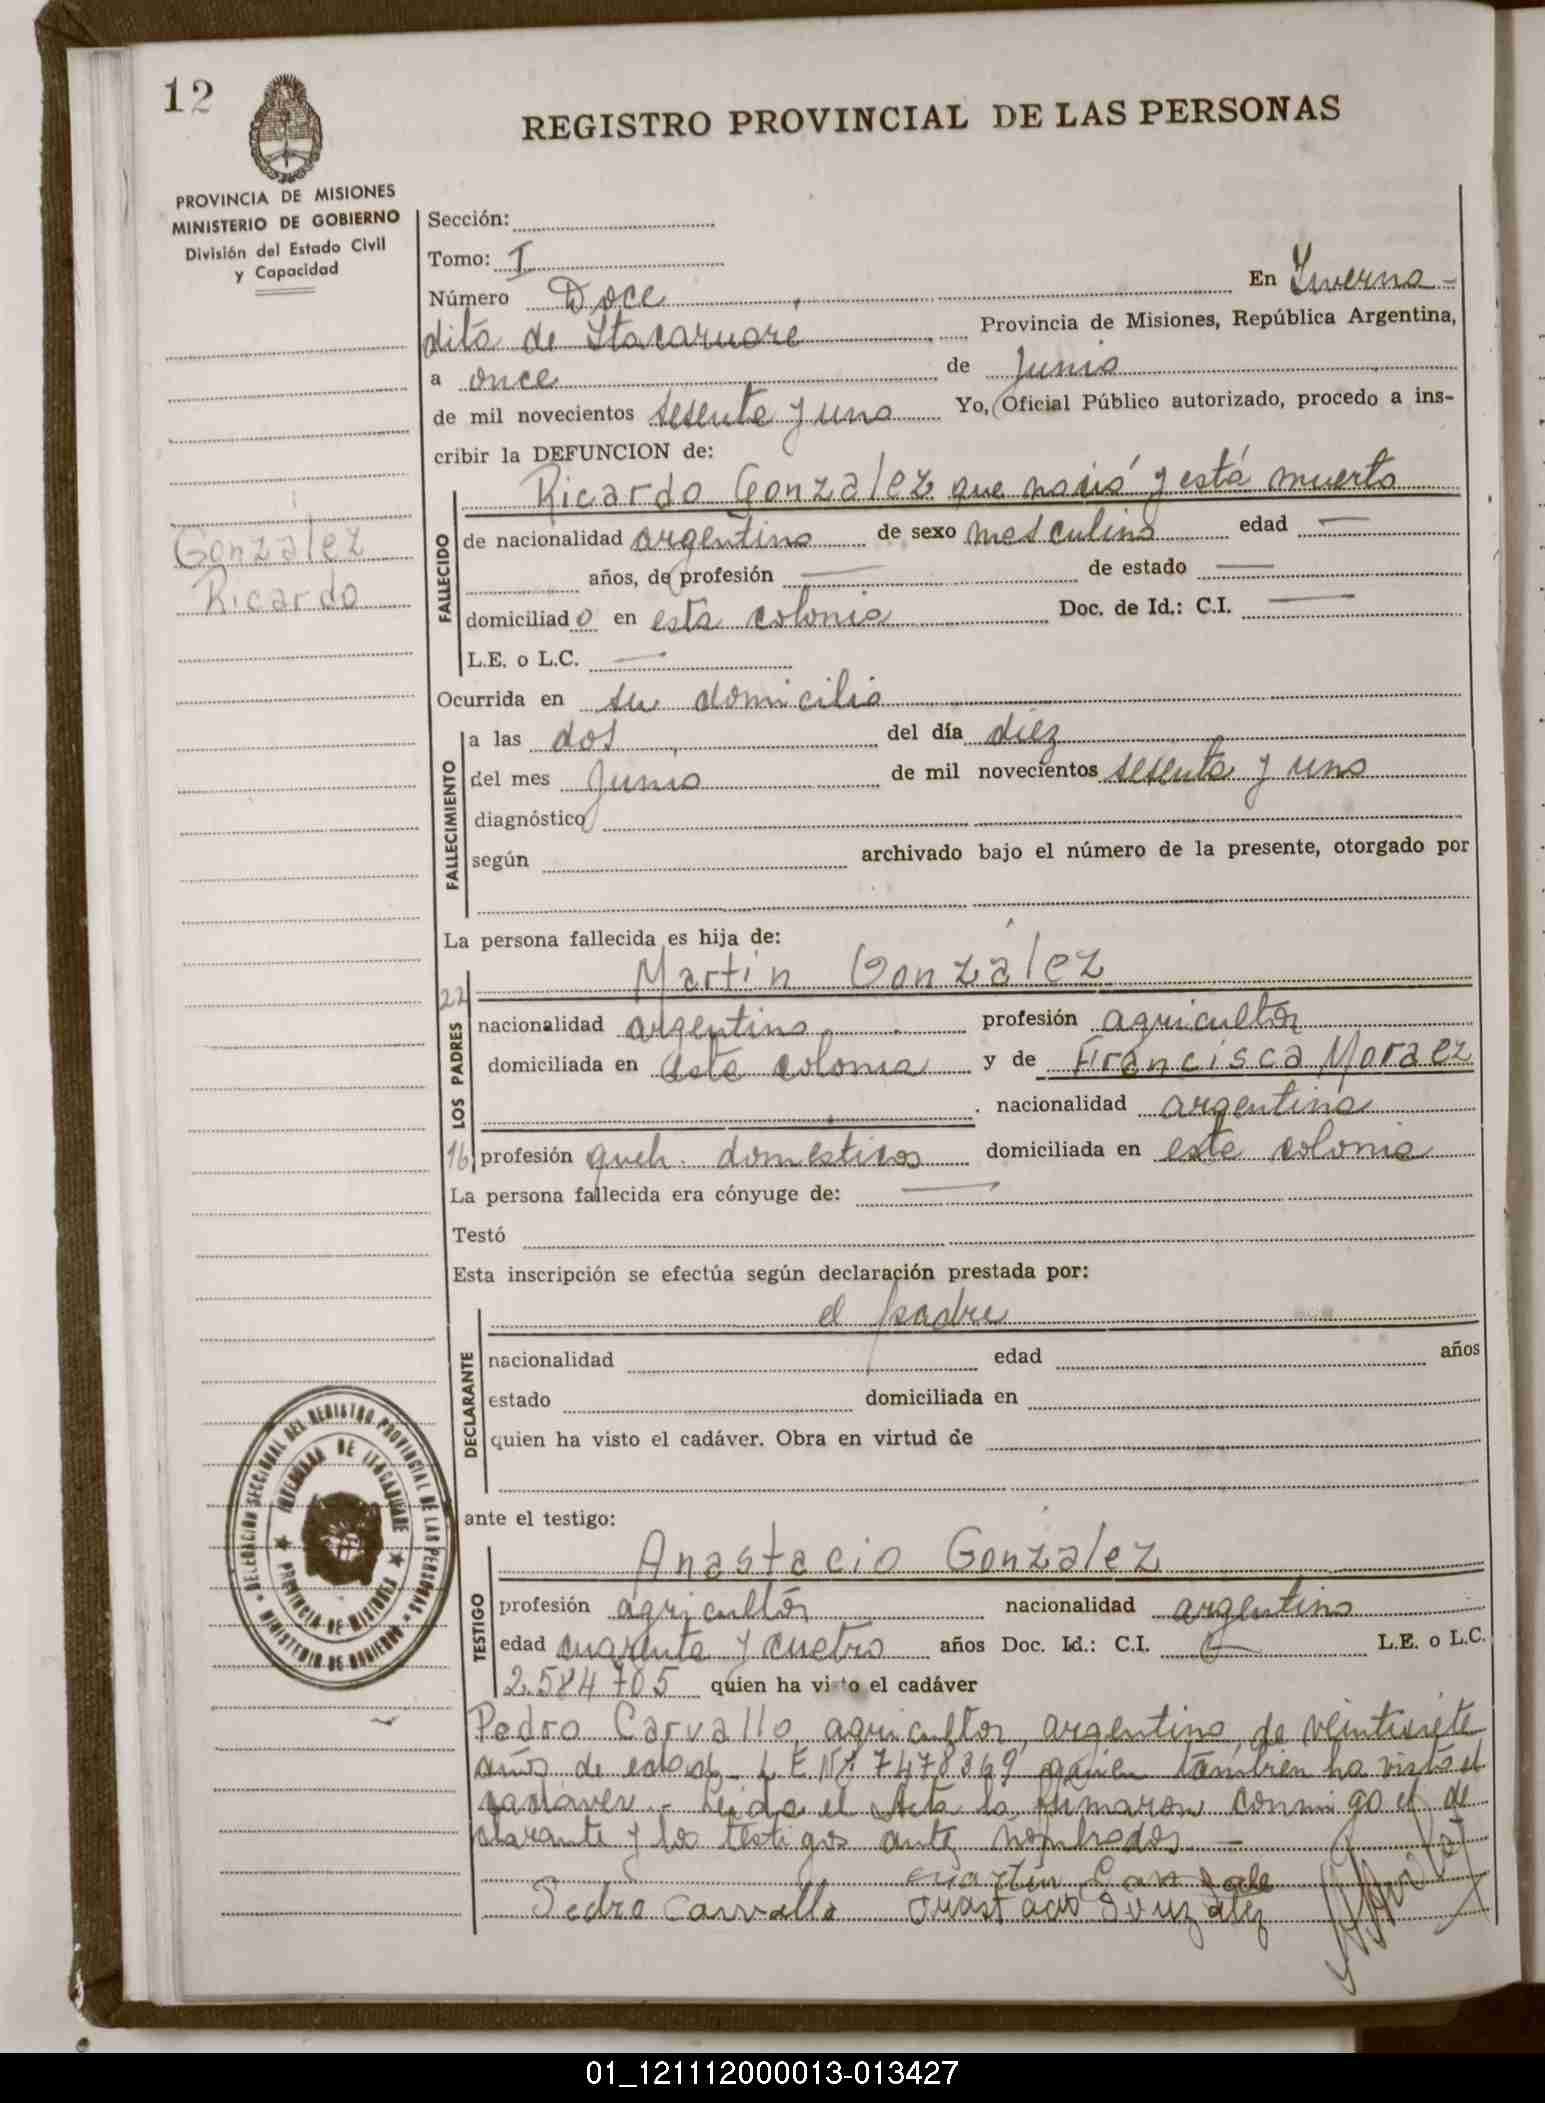 12
REGISTRO PROVINCIAL DE LAS PERSONAS
PROVINCIA DE MISIONES
MINISTERIO DE GOBIERNO
División del Estado Civil
y Capacidad
Sección:
Tomo: I
Número Doce En Inverna-
dita de Itacaruaré Provincia de Misiones, República Argentina,
a once de Junio
de mil novecientos sesenta y uno Yo, Oficial Público autorizado, procedo a ins-
cribir la DEFUNCION de:
Ricardo González que nació y está muerto
González
Ricardo
FALLECIDO
de nacionalidad argentino de sexo masculino edad —
años, de profesión — de estado —
domiciliado en esta colonia Doc. de Id.: C.I. —
L.E. o L.C. —
Ocurrida en su domicilio
FALLECIMIENTO
a las dos del día diez
del mes Junio de mil novecientos sesenta y uno
diagnóstico
según archivado bajo el número de la presente, otorgado por
La persona fallecida es hija de:
22 Martín González
LOS PADRES
nacionalidad argentino profesión agricultor
domiciliada en esta colonia y de Francisca Moraez
nacionalidad argentina
16 profesión queh. domesticos domiciliada en esta colonia
La persona fallecida era cónyuge de: —
Testó
Esta inscripción se efectúa según declaración prestada por:
el padre
DECLARANTE
nacionalidad edad años
estado domiciliada en
quien ha visto el cadáver. Obra en virtud de
DELEGACION SECCIONAL DEL REGISTRO PROVINCIAL DE LAS PERSONAS
MINISTERIO DE GOBIERNO
DE ITACARUARE
PROVINCIA DE MISIONES
ante el testigo:
Anastacio González
TESTIGO
profesión agricultor nacionalidad argentino
edad cuarenta y cuatro años Doc. Id.: C.I. L.E. o L.C.
2.584705 quien ha visto el cadáver
Pedro Carvallo, agricultor, argentino, de veintisiete
años de edad L E Nº 7478369 quien también ha visto el
cadaver.- Leida el Acta la firmaron conmigo el de
clarante y los testigos ante nombrados.—
Martin Gonzale
Pedro Carvallo Anastacio Gonzalez
01_121112000013-013427